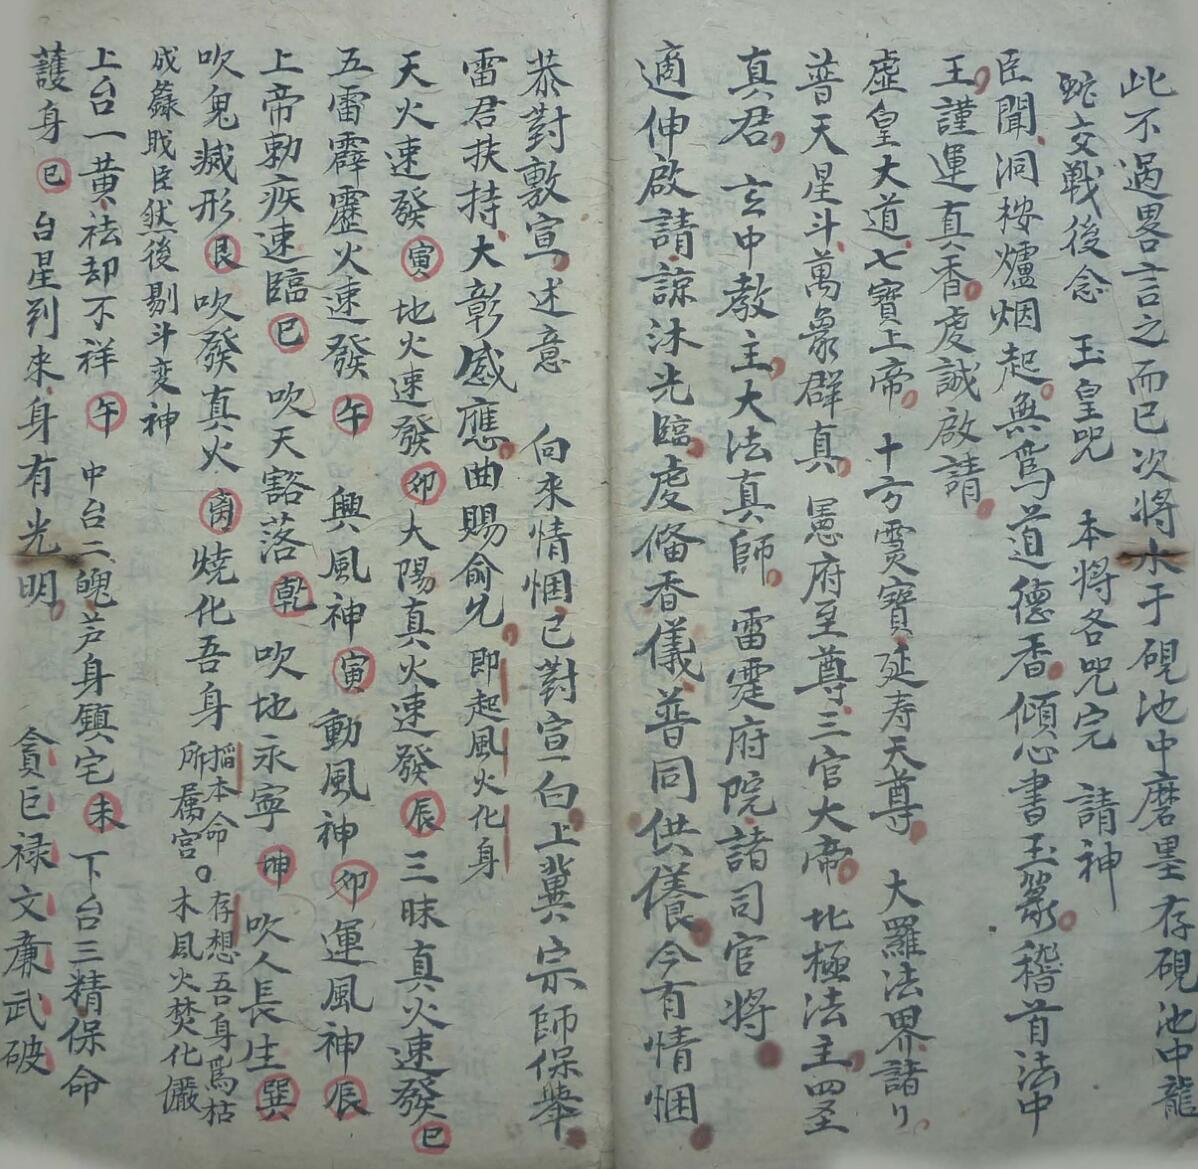 此不過畧言之而已次將水于硯池中磨墨存硯池中龍
蛇交戰後念 玉皇咒 本將各咒完 請神
臣聞洞按爐烟起無為道德香傾心書玉篆稽首法中
王謹運真香虔誠啟請
虛皇大道七寶上帝 十方灵寶延寿天尊 大羅法界諸〻
普天星斗萬象群真 憲府至尊三官大帝北極法主四圣
真君 玄中教主大法真師 雷霆府院諸司官將
適伸啟請諒沐光臨虔俻香儀普同供養今有情悃
恭對敷宣 述意 向來情悃已對宣白上冀宗師保舉
雷君扶持大彰感應曲賜俞允 即起風火化身
天火速發寅 地火速發卯 大陽真火速發辰 三昧真火速發巳
五雷霹靂火速發午 興風神寅 動風神卯 運風神辰
上帝勅疾速臨巳 吹天豁落乾 吹地永寧坤 吹人長生巽
吹鬼滅形艮 吹發真火离 燒化吾身 搯本命所属宫。 存想吾身為枯木風火焚化儼
成籙戝臣然後剔斗变神
上台一黄祛却不祥午 中台二魄芦身鎮宅未 下台三精保命
護身巳 台星到來身有光明 貪巨禄文廉武破